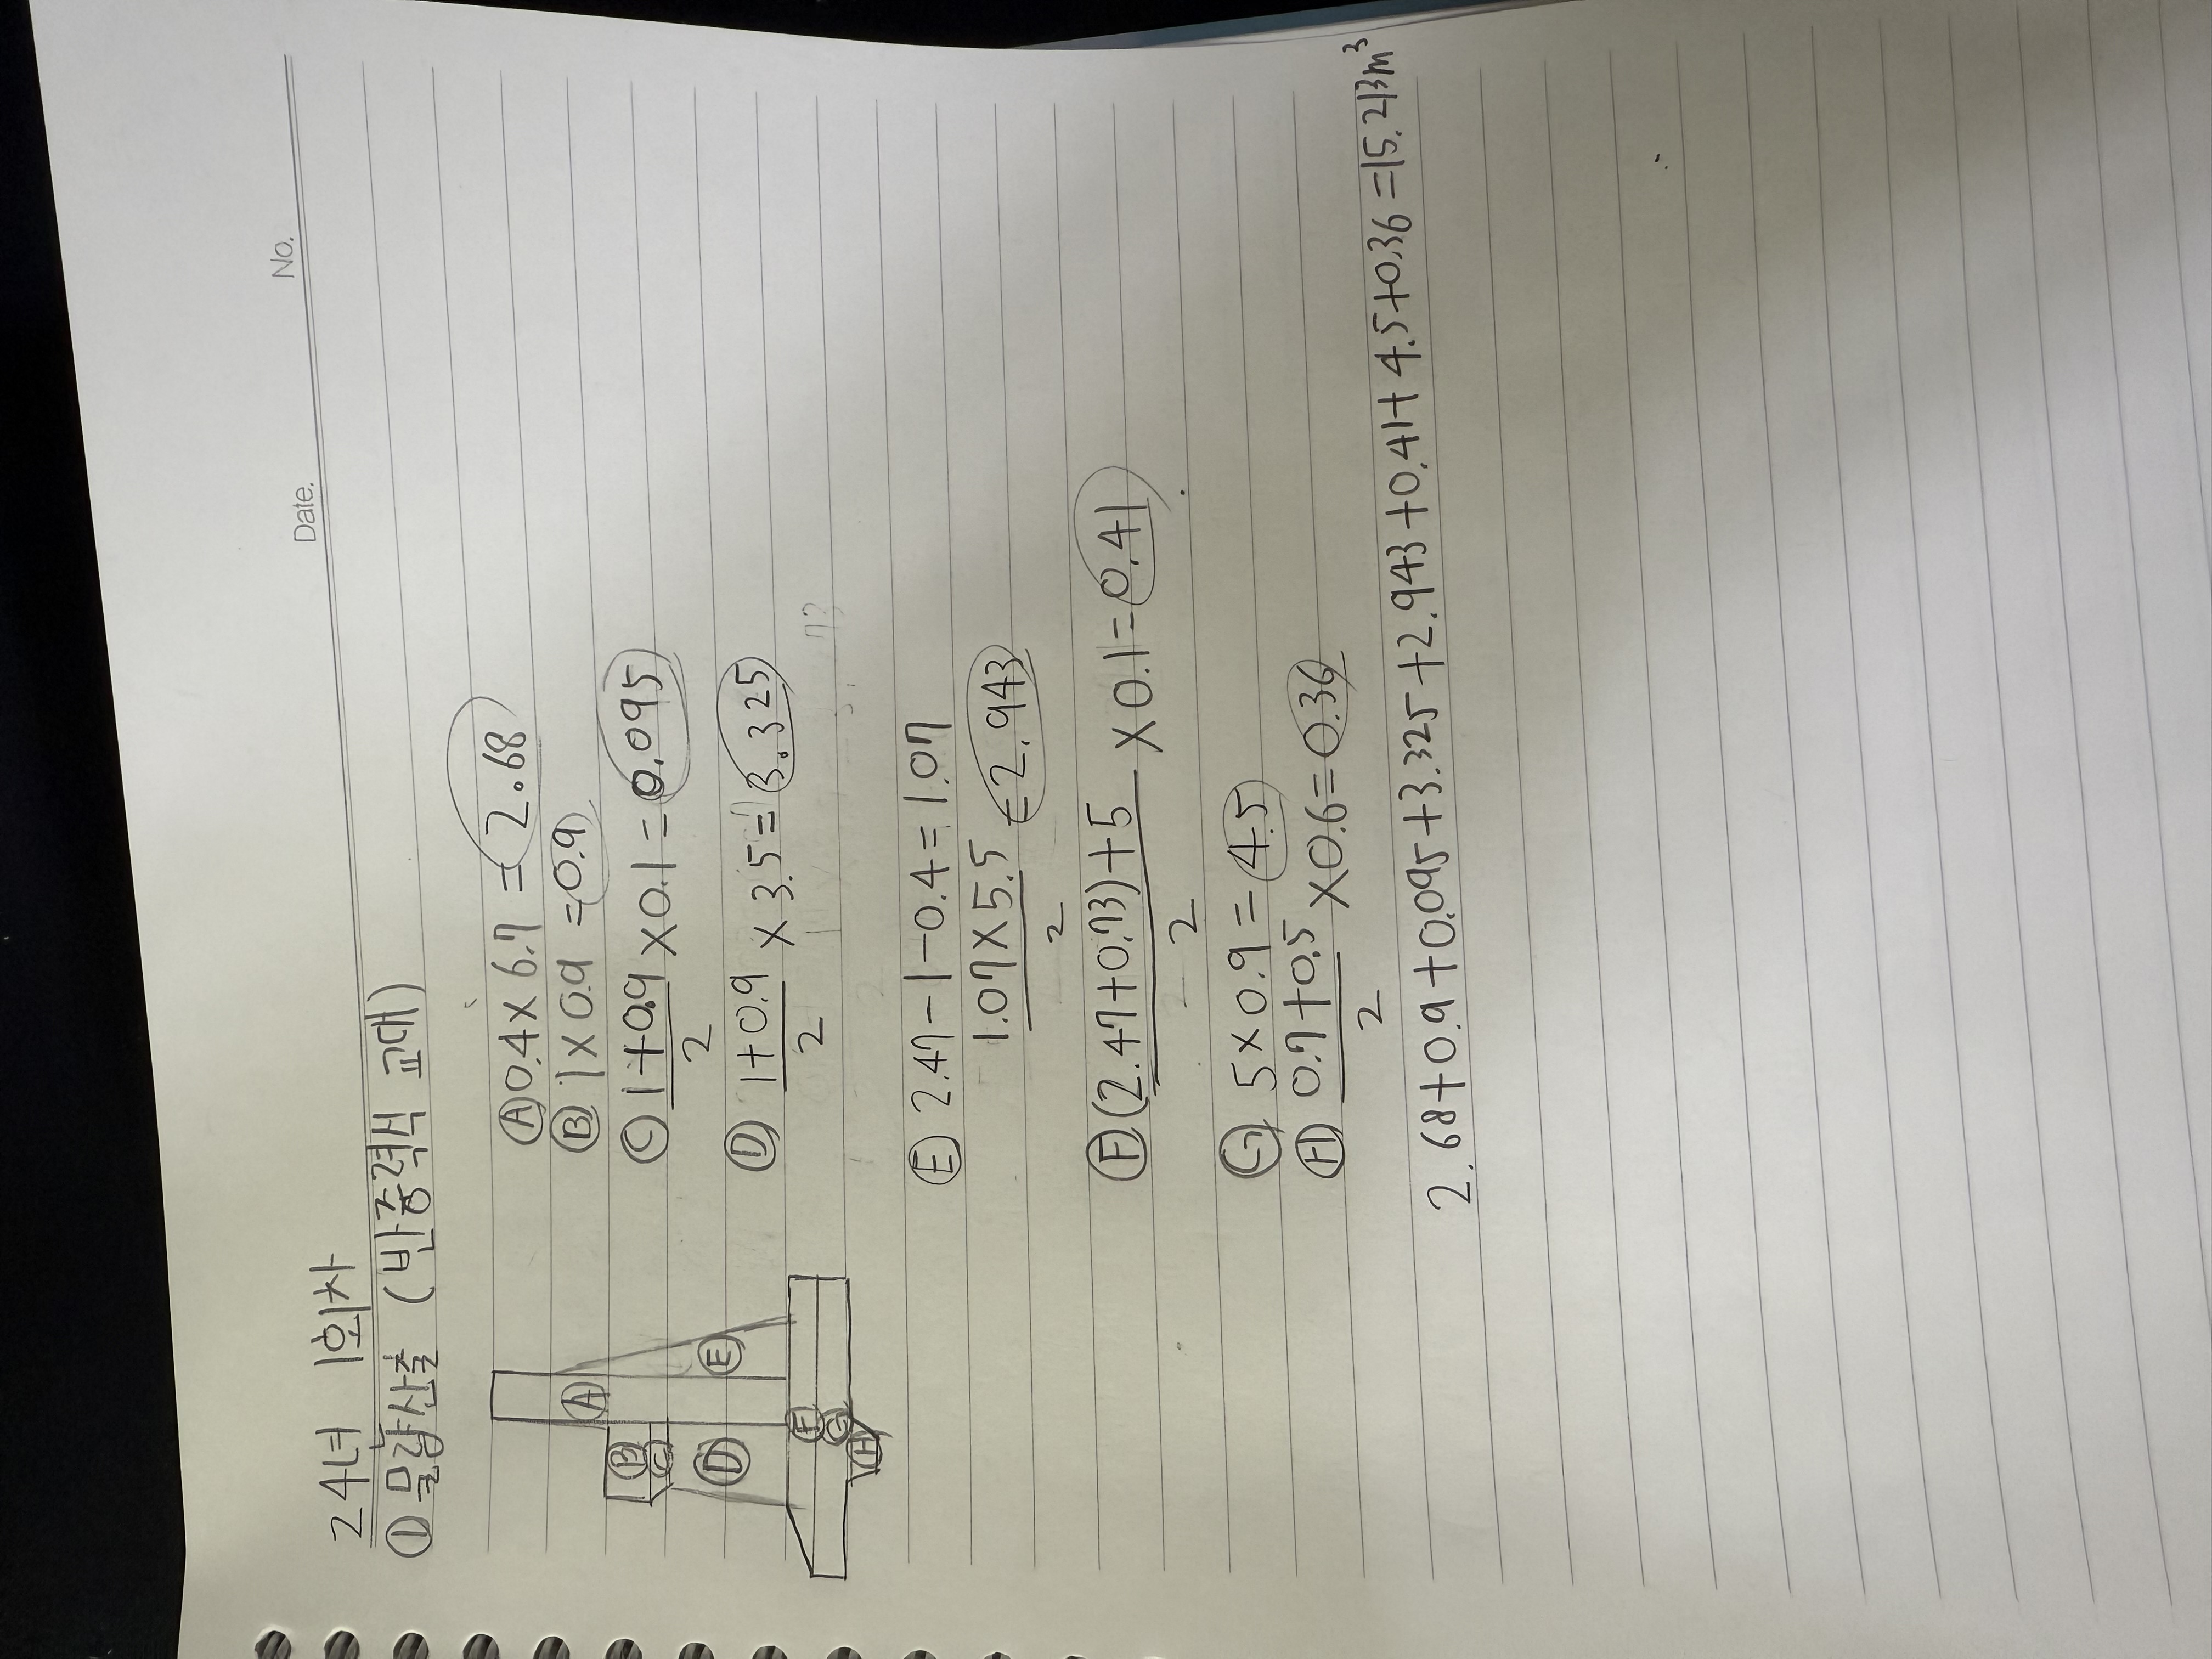 No.
Date.
24년 1회차
① 물량산출 (반중력식 교대)
Ⓐ 0.4 × 6.7 = 2.68
Ⓑ 1 × 0.9 = 0.9
Ⓒ 1+0.9/2 × 0.1 = 0.095
Ⓓ 1+0.9/2 × 3.5 = 3.325
Ⓔ 2.47 - 1 - 0.4 = 1.07
1.07 × 5.5/2 = 2.943
Ⓕ (2.47+0.73)+5/2 × 0.1 = 0.41
Ⓖ 5 × 0.9 = 4.5
Ⓗ 0.7+0.5/2 × 0.6 = 0.36
2.68+0.9+0.095+3.325+2.943+0.41+4.5+0.36=15.213m³
Ⓐ
Ⓑ
Ⓒ
Ⓓ
Ⓔ
Ⓕ
Ⓖ
Ⓗ